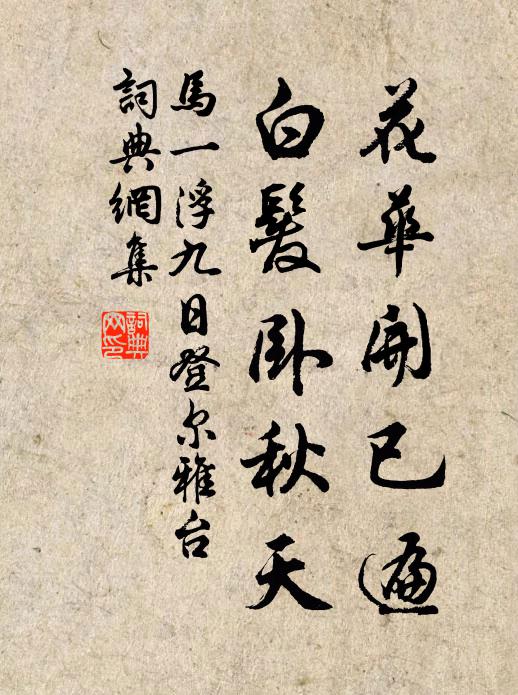 花華開已遍
白髮臥秋天
馬一浮九日登尔雅台
詞典網集
詞典
网印